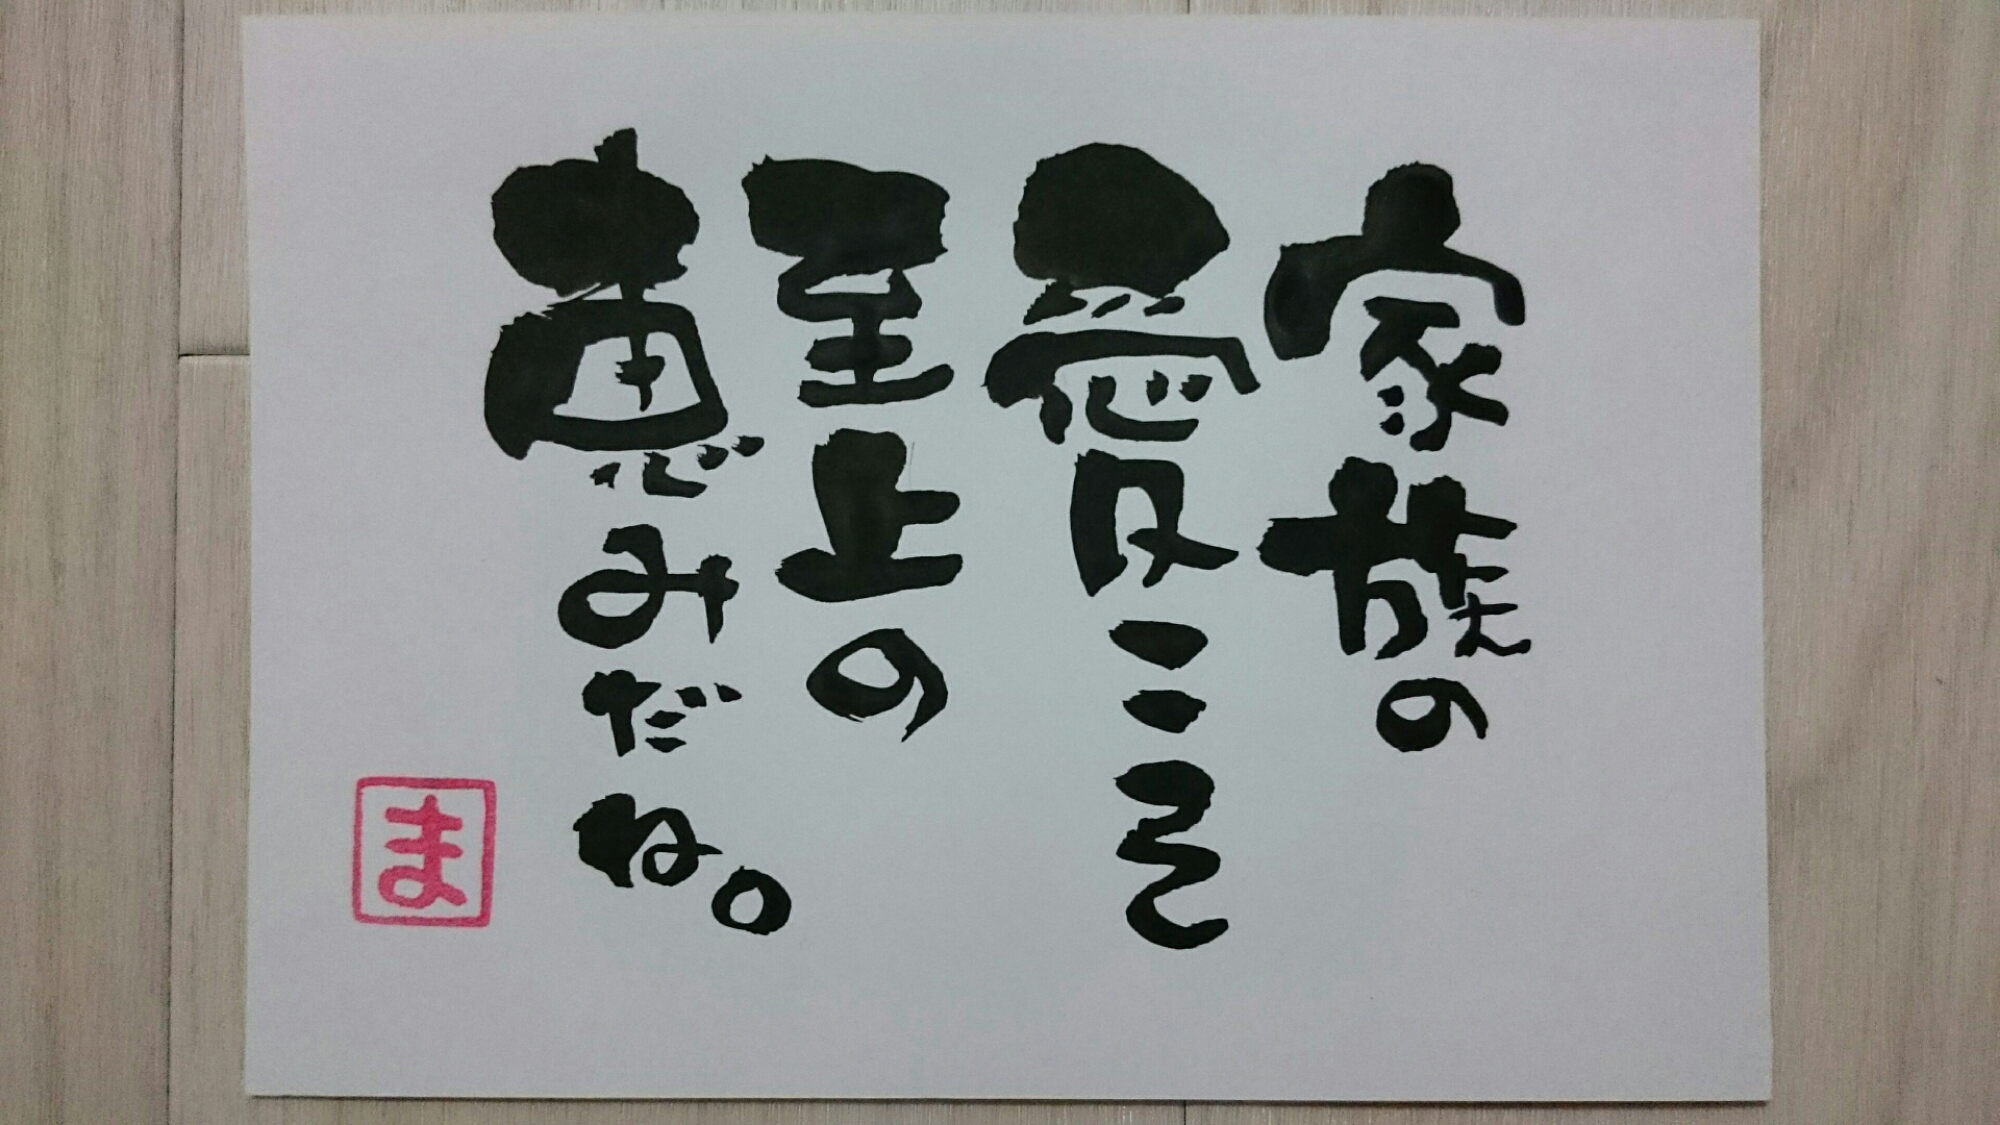 家族の
愛こそ
至上の
恵みだね。
ま